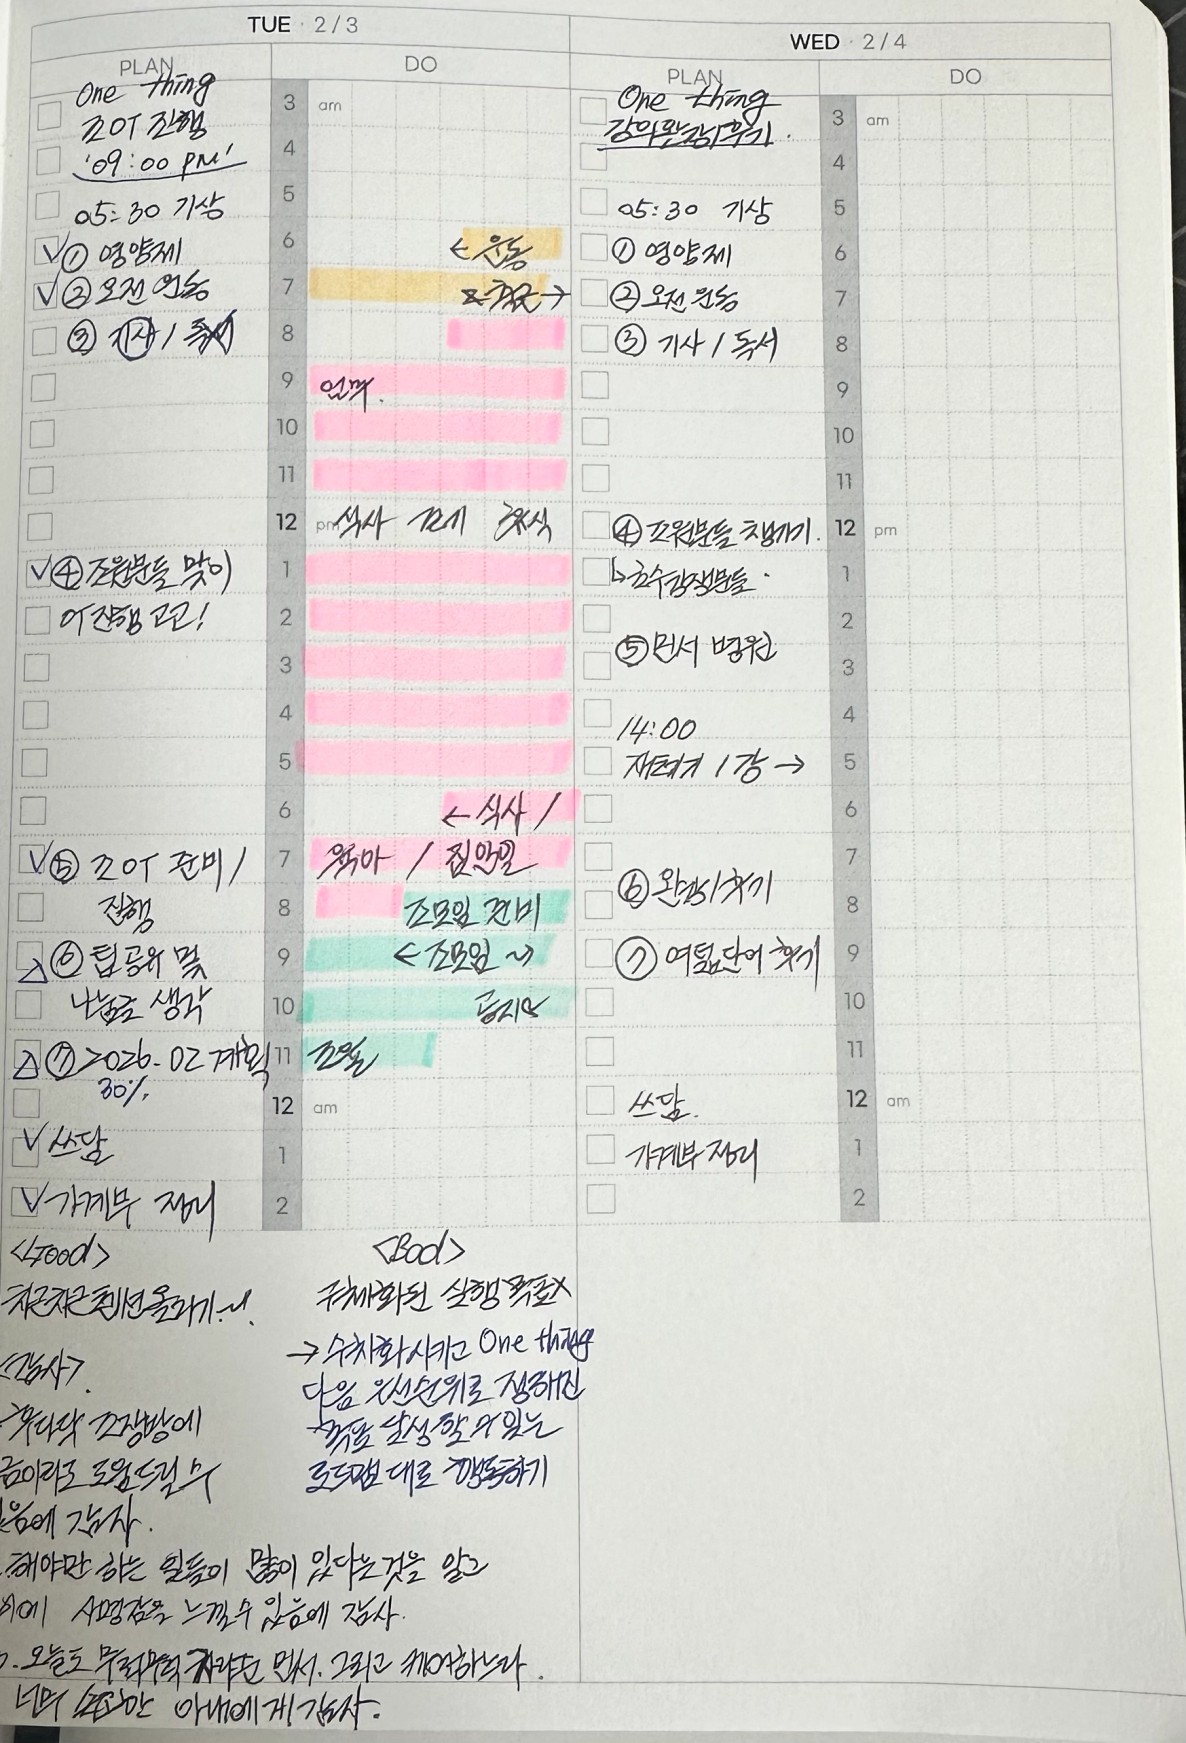 TUE · 2/3
PLAN
DO
One thing
조OT 진행
'09:00 PM'
05:30 기상
① 영양제
② 오전 운동
③ 기사 / 독서
④ 조원분들 맞이
OT진행 고고!
⑤ 조OT 준비 /
진행
⑥ 팁공유 및
나눔글 생각
⑦ 2026.02 계획
30%
쓰담
가계부 정리
3 am
4
5
6 ← 운동
7 출근 →
8
9 업무.
10
11
12 pm 식사 휴식
1
2
3
4
5
6 ← 식사 /
7 육아 / 집안일
8 조모임 준비
9 ← 조모임 ~>
10
11 조모임
12 am
1
2
<Good>
차근차근 컨디션 올라가기~!
<감사>
조장방에
도움드릴 수
음에 감사.
해야만 하는 일들이 많이 있다는것을 알고
이에 사명감을 느낄수 있음에 감사.
오늘도 무럭무럭 자라는 민서. 그리고 케어하느라
너무 수고한 아내에게 감사.
<Bad>
구체화된 실행 목표X
→ 수치화시키고 One thing
다음 우선순위로 정해진
목표 달성 할 수 있는
로드맵 대로 행동하기
WED · 2/4
PLAN
DO
One thing
강의완강/후기.
05:30 기상
① 영양제
② 오전 운동
③ 기사 / 독서
④ 조원분들 챙기기.
⑤ 민서 병원
14:00
재테기 1강 →
⑥ 완강/후기
⑦ 여덟단어 후기
쓰담.
가계부 정리
3 am
4
5
6
7
8
9
10
11
12 pm
1
2
3
4
5
6
7
8
9
10
11
12 am
1
2